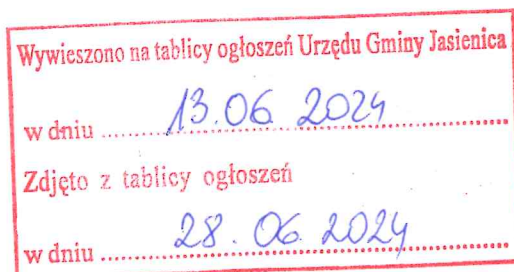 Wywieszono na tablicy ogłoszeń Urzędu Gminy Jasienica
w dniu ..... 13.06. 2024 .....
Zdjęto z tablicy ogłoszeń
w dniu ..... 28. 06. 2024 .....